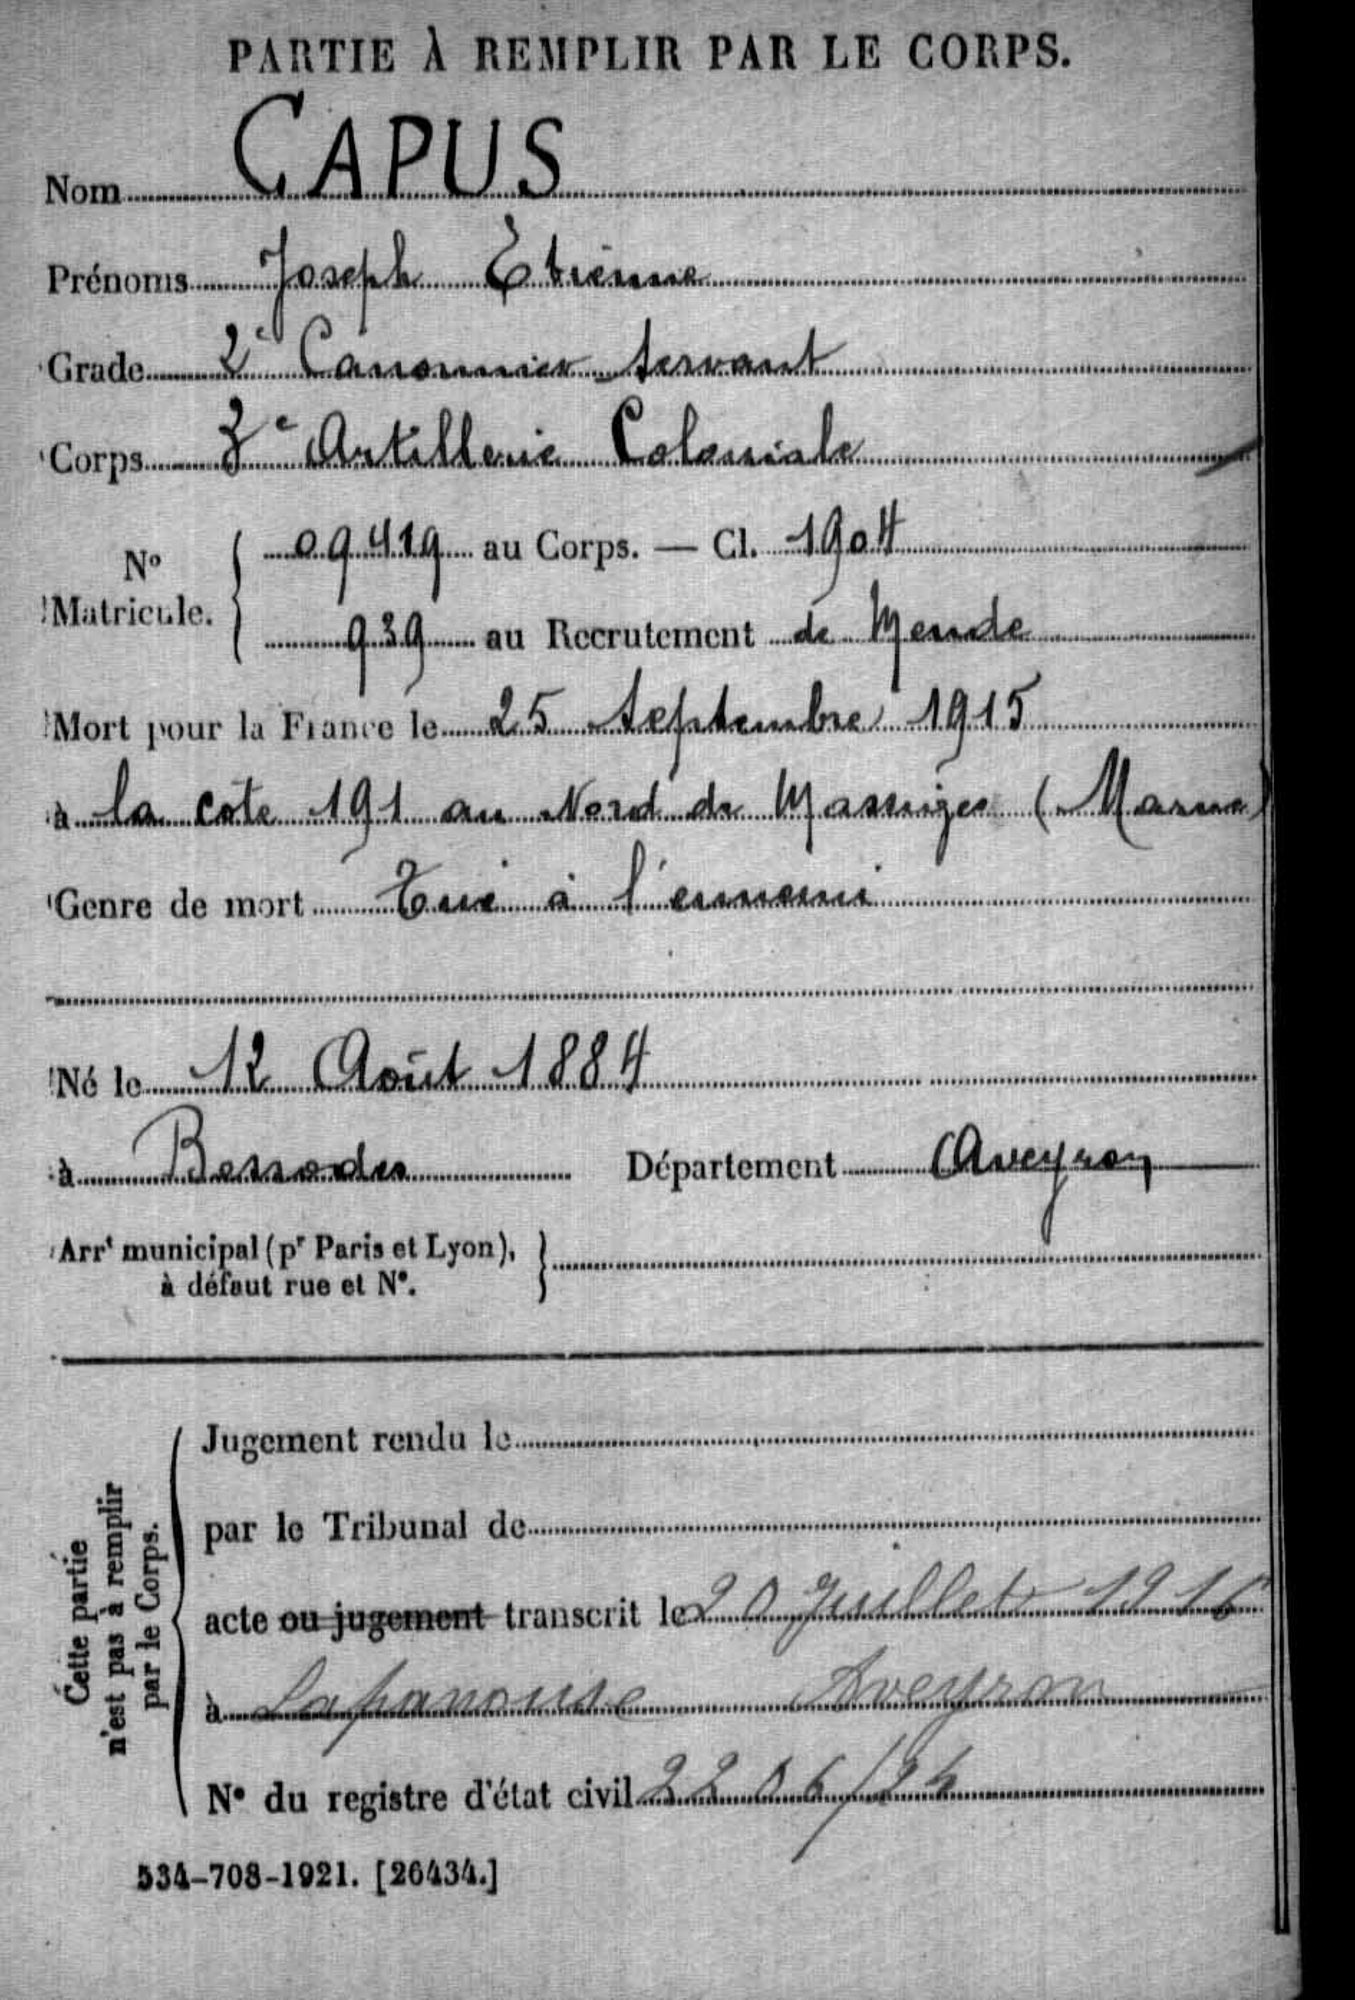 PARTIE À REMPLIR PAR LE CORPS.
Nom CAPUS
Prénoms Joseph Etienne
Grade 2e Canonnier servant
Corps 3e Artillerie Coloniale
No Matricule. { 09419 au Corps. — Cl. 1904
939 au Recrutement de Mende
Mort pour la France le 25 Septembre 1915
à la cote 191 au Nord de Massiges (Marne)
Genre de mort Tué à l'ennemi
Né le 12 Août 1884
à Bessodes Département Aveyron
Arrt municipal (pr Paris et Lyon), }
à défaut rue et No.
Cette partie
n'est pas à remplir
par le Corps.
Jugement rendu le
par le Tribunal de
acte ou jugement transcrit le 20 Juillet 1916
à Lapanouse Aveyron
No du registre d'état civil
534-708-1921. [26434.]